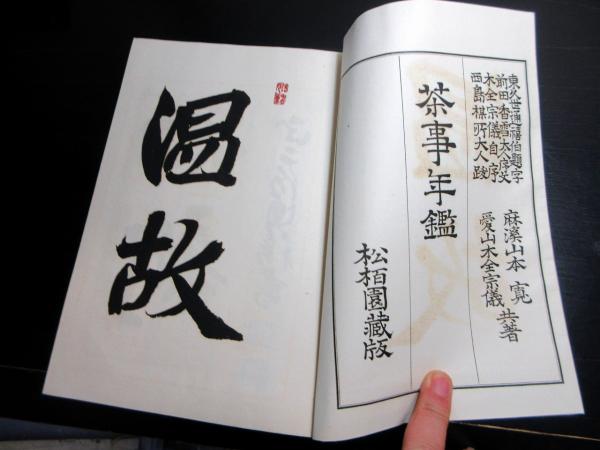 東久世通禧伯題字
前田香雪大人序文
木全宗儀自序
西島楳所大人跋
麻溪山本寛
愛山木全宗儀
共著
茶事年鑑
松栢園蔵版
温故